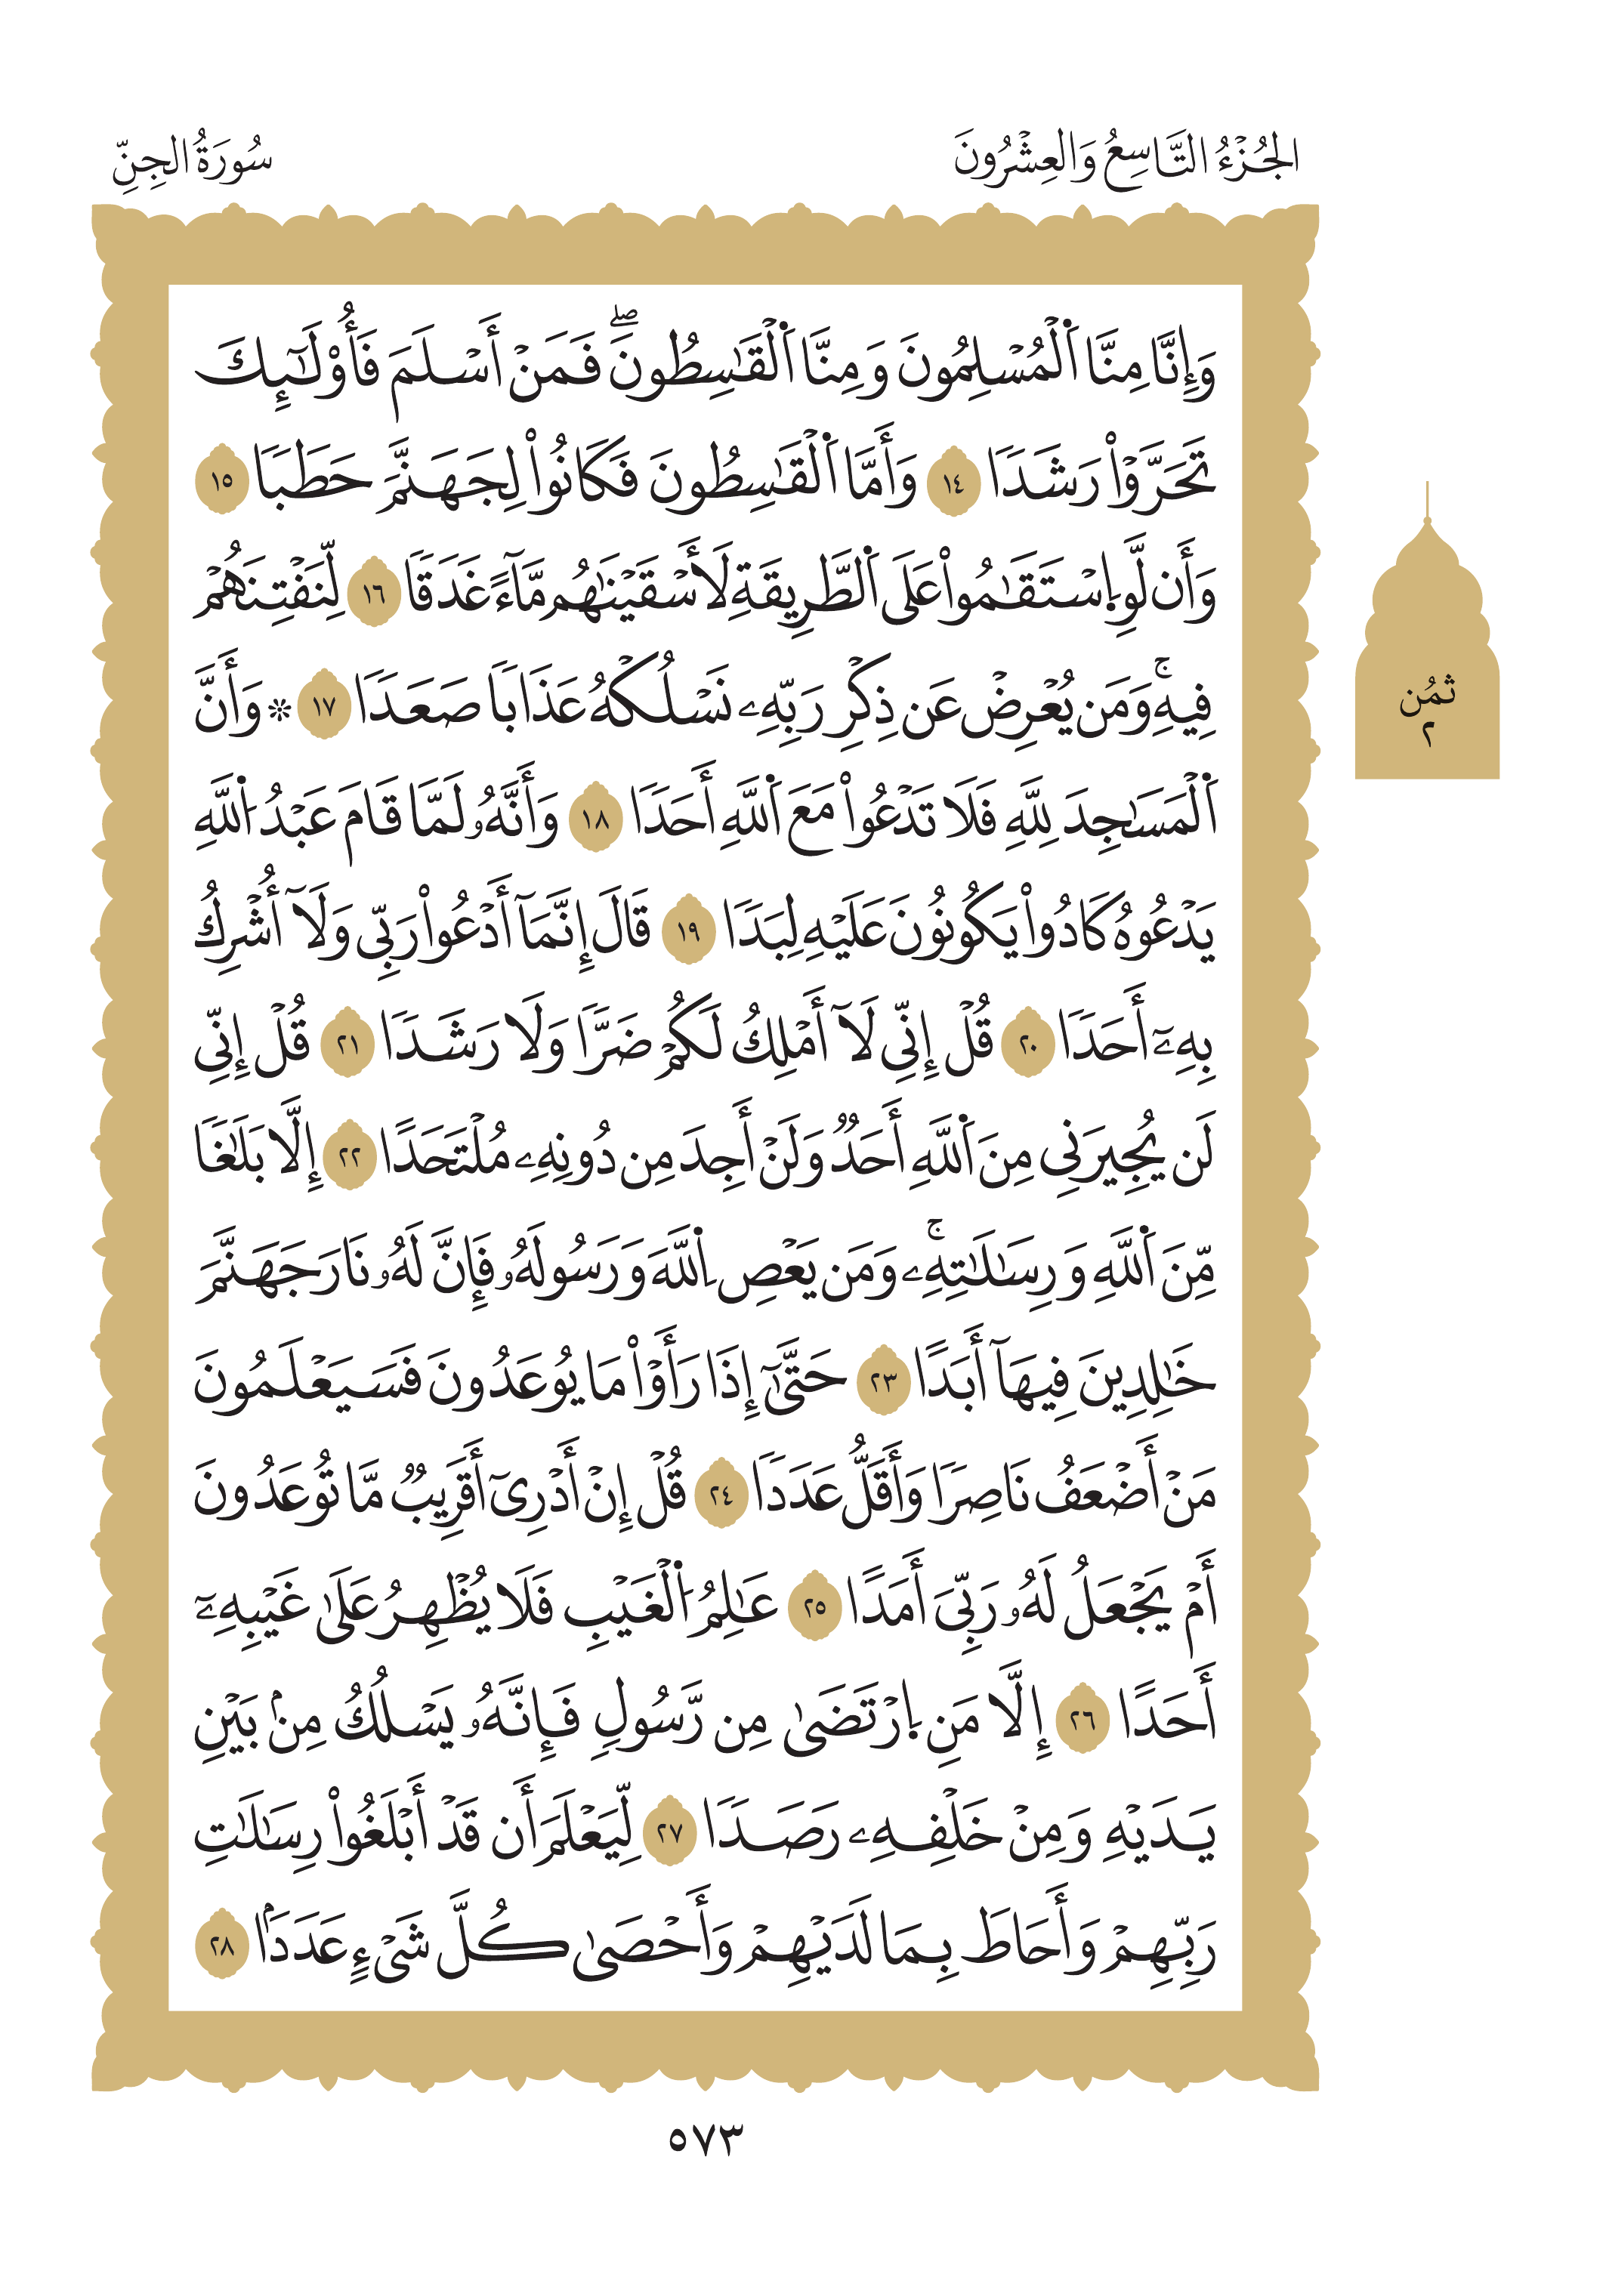 الجُزْءُ التَّاسِعُ وَالعِشْرُونَ
سُورَةُ الجِنِّ
وَإِنَّا مِنَّا اَ۬لْمُسْلِمُونَ وَمِنَّا اَ۬لْقَٰسِطُونَۖ فَمَنْ أَسْلَمَ فَأُوْلَٰٓئِكَ
تَحَرَّوْاْ رَشَدًا ١٤ وَأَمَّا اَ۬لْقَٰسِطُونَ فَكَانُواْ لِجَهَنَّمَ حَطَبًا ١٥
وَأَن لَّوِ اِ۪سْتَقَٰمُواْ عَلَى اَ۬لطَّرِيقَةِ لَأَسْقَيْنَٰهُم مَّآءً غَدَقًا ١٦ لِّنَفْتِنَهُمْ
فِيهِۚ وَمَن يُعْرِضْ عَن ذِكْرِ رَبِّهِۦ نَسْلُكْهُ عَذَابًا صَعَدًا ١٧ ۞ وَأَنَّ
اَ۬لْمَسَٰجِدَ لِلَّهِ فَلَا تَدْعُواْ مَعَ اَ۬للَّهِ أَحَدًا ١٨ وَأَنَّهُۥ لَمَّا قَامَ عَبْدُ اُ۬للَّهِ
يَدْعُوهُ كَادُواْ يَكُونُونَ عَلَيْهِ لِبَدًا ١٩ قَالَ إِنَّمَآ أَدْعُواْ رَبِّي وَلَآ أُشْرِكُ
بِهِۦٓ أَحَدًا ٢٠ قُلْ إِنِّي لَآ أَمْلِكُ لَكُمْ ضَرًّا وَلَا رَشَدًا ٢١ قُلْ إِنِّي
لَن يُجِيرَنِي مِنَ اَ۬للَّهِ أَحَدٌ وَلَنْ أَجِدَ مِن دُونِهِۦ مُلْتَحَدًا ٢٢ إِلَّا بَلَٰغًا
مِّنَ اَ۬للَّهِ وَرِسَٰلَٰتِهِۦۚ وَمَن يَعْصِ اِ۬للَّهَ وَرَسُولَهُۥ فَإِنَّ لَهُۥ نَارَ جَهَنَّمَ
خَٰلِدِينَ فِيهَآ أَبَدًا ٢٣ حَتَّىٰٓ إِذَا رَأَوْاْ مَا يُوعَدُونَ فَسَيَعْلَمُونَ
مَنْ أَضْعَفُ نَاصِرًا وَأَقَلُّ عَدَدًا ٢٤ قُلْ إِنْ أَدْرِىٓ أَقَرِيبٌ مَّا تُوعَدُونَ
أَمْ يَجْعَلُ لَهُۥ رَبِّىَ أَمَدًا ٢٥ عَٰلِمُ اُ۬لْغَيْبِ فَلَا يُظْهِرُ عَلَىٰ غَيْبِهِۦٓ
أَحَدًا ٢٦ إِلَّا مَنِ اِ۪رْتَضَىٰ مِن رَّسُولٍ فَإِنَّهُۥ يَسْلُكُ مِنۢ بَيْنِ
يَدَيْهِ وَمِنْ خَلْفِهِۦ رَصَدًا ٢٧ لِّيَعْلَمَ أَن قَدْ أَبْلَغُواْ رِسَٰلَٰتِ
رَبِّهِمْ وَأَحَاطَ بِمَا لَدَيْهِمْ وَأَحْصَىٰ كُلَّ شَيْءٍ عَدَدَۢا ٢٨
ثُمُن
٢
٥٧٣